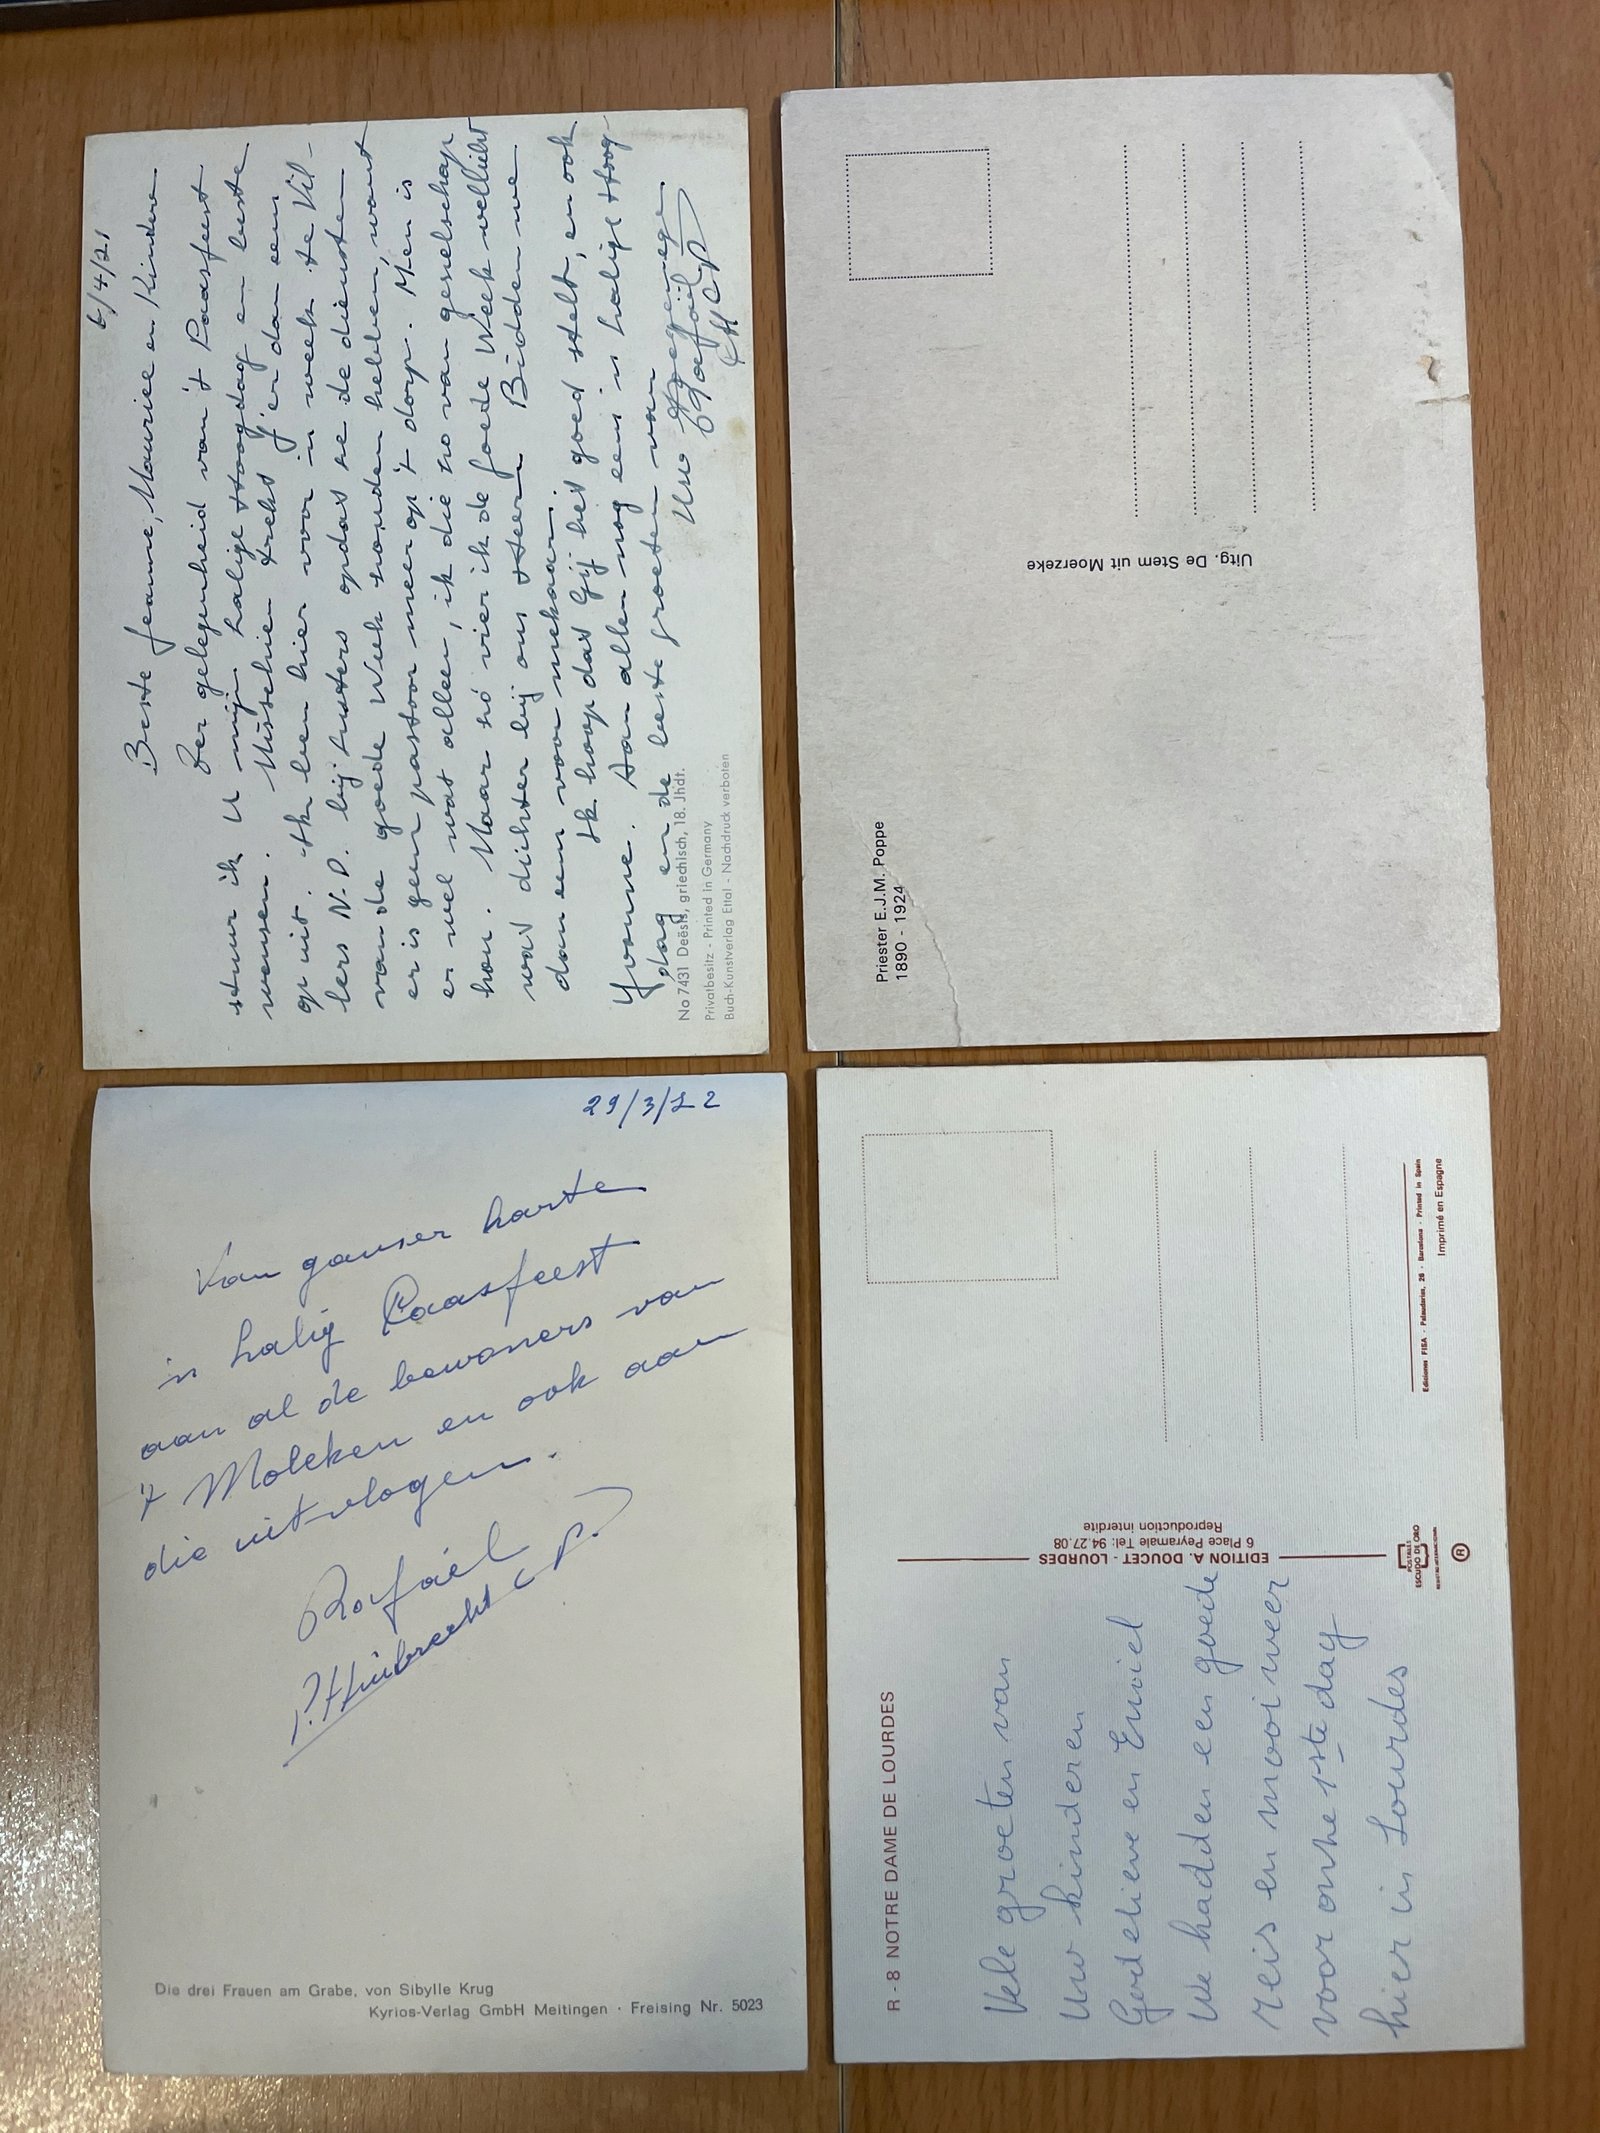 6/4/21
Beste Jeanne, Maurice en Kinderen
Ter gelegenheid van 't Paasfeest
stuur ik U mijn zalige Hoogdag en beste
wensen. Misschien trekt g'er dan eens
op uit. Ik ben hier voor 'n week te Vil-
lers N-D. bij zusters opdat ze de diensten
van de goede Week zouden hebben, want
er is geen pastoor meer op 't dorp. Men is
er wel wat alleen, ik die zo van gezelschap
hou. Maar zó vier ik de Goede Week wellicht
wat dichter bij ons Heer. Bidden we
dan eens voor mekaar.
Ik hoop dat Gij het goed stelt, en ook
Yvonne. Aan allen nog eens 'n zalige Hoog-
dag en de beste groeten van
Uw
Rafaël
No 7431 Deësis, griechisch, 18. Jhdt.
Privatbesitz - Printed in Germany
Buch-Kunstverlag Ettal - Nachdruck verboten
Priester E.J.M. Poppe
1890 - 1924
Uitg. De Stem uit Moerzeke
29/3/22
Van ganser harte
'n zalig Paasfeest
aan al de bewoners van
't Moleken en ook aan
die uitvlogen.
Rafaël
P. Huibrecht c.p.
Die drei Frauen am Grabe, von Sibylle Krug
Kyrios-Verlag GmbH Meitingen · Freising Nr. 5023
R - 8 NOTRE DAME DE LOURDES
Vele groeten van
Uw kinderen
Godelieve en Emiel
We hadden een goede
reis en mooi weer
voor onze 1ste dag
hier in Lourdes
EDITION A. DOUCET - LOURDES
6 Place Peyramale Tel: 94.27.08
Reproduction interdite
POSTALES
ESCUDO DE ORO
REGISTRO INTERNACIONAL
®
Ediciones FISA - Palaudarias, 26 - Barcelona - Printed in Spain
Imprimé en Espagne